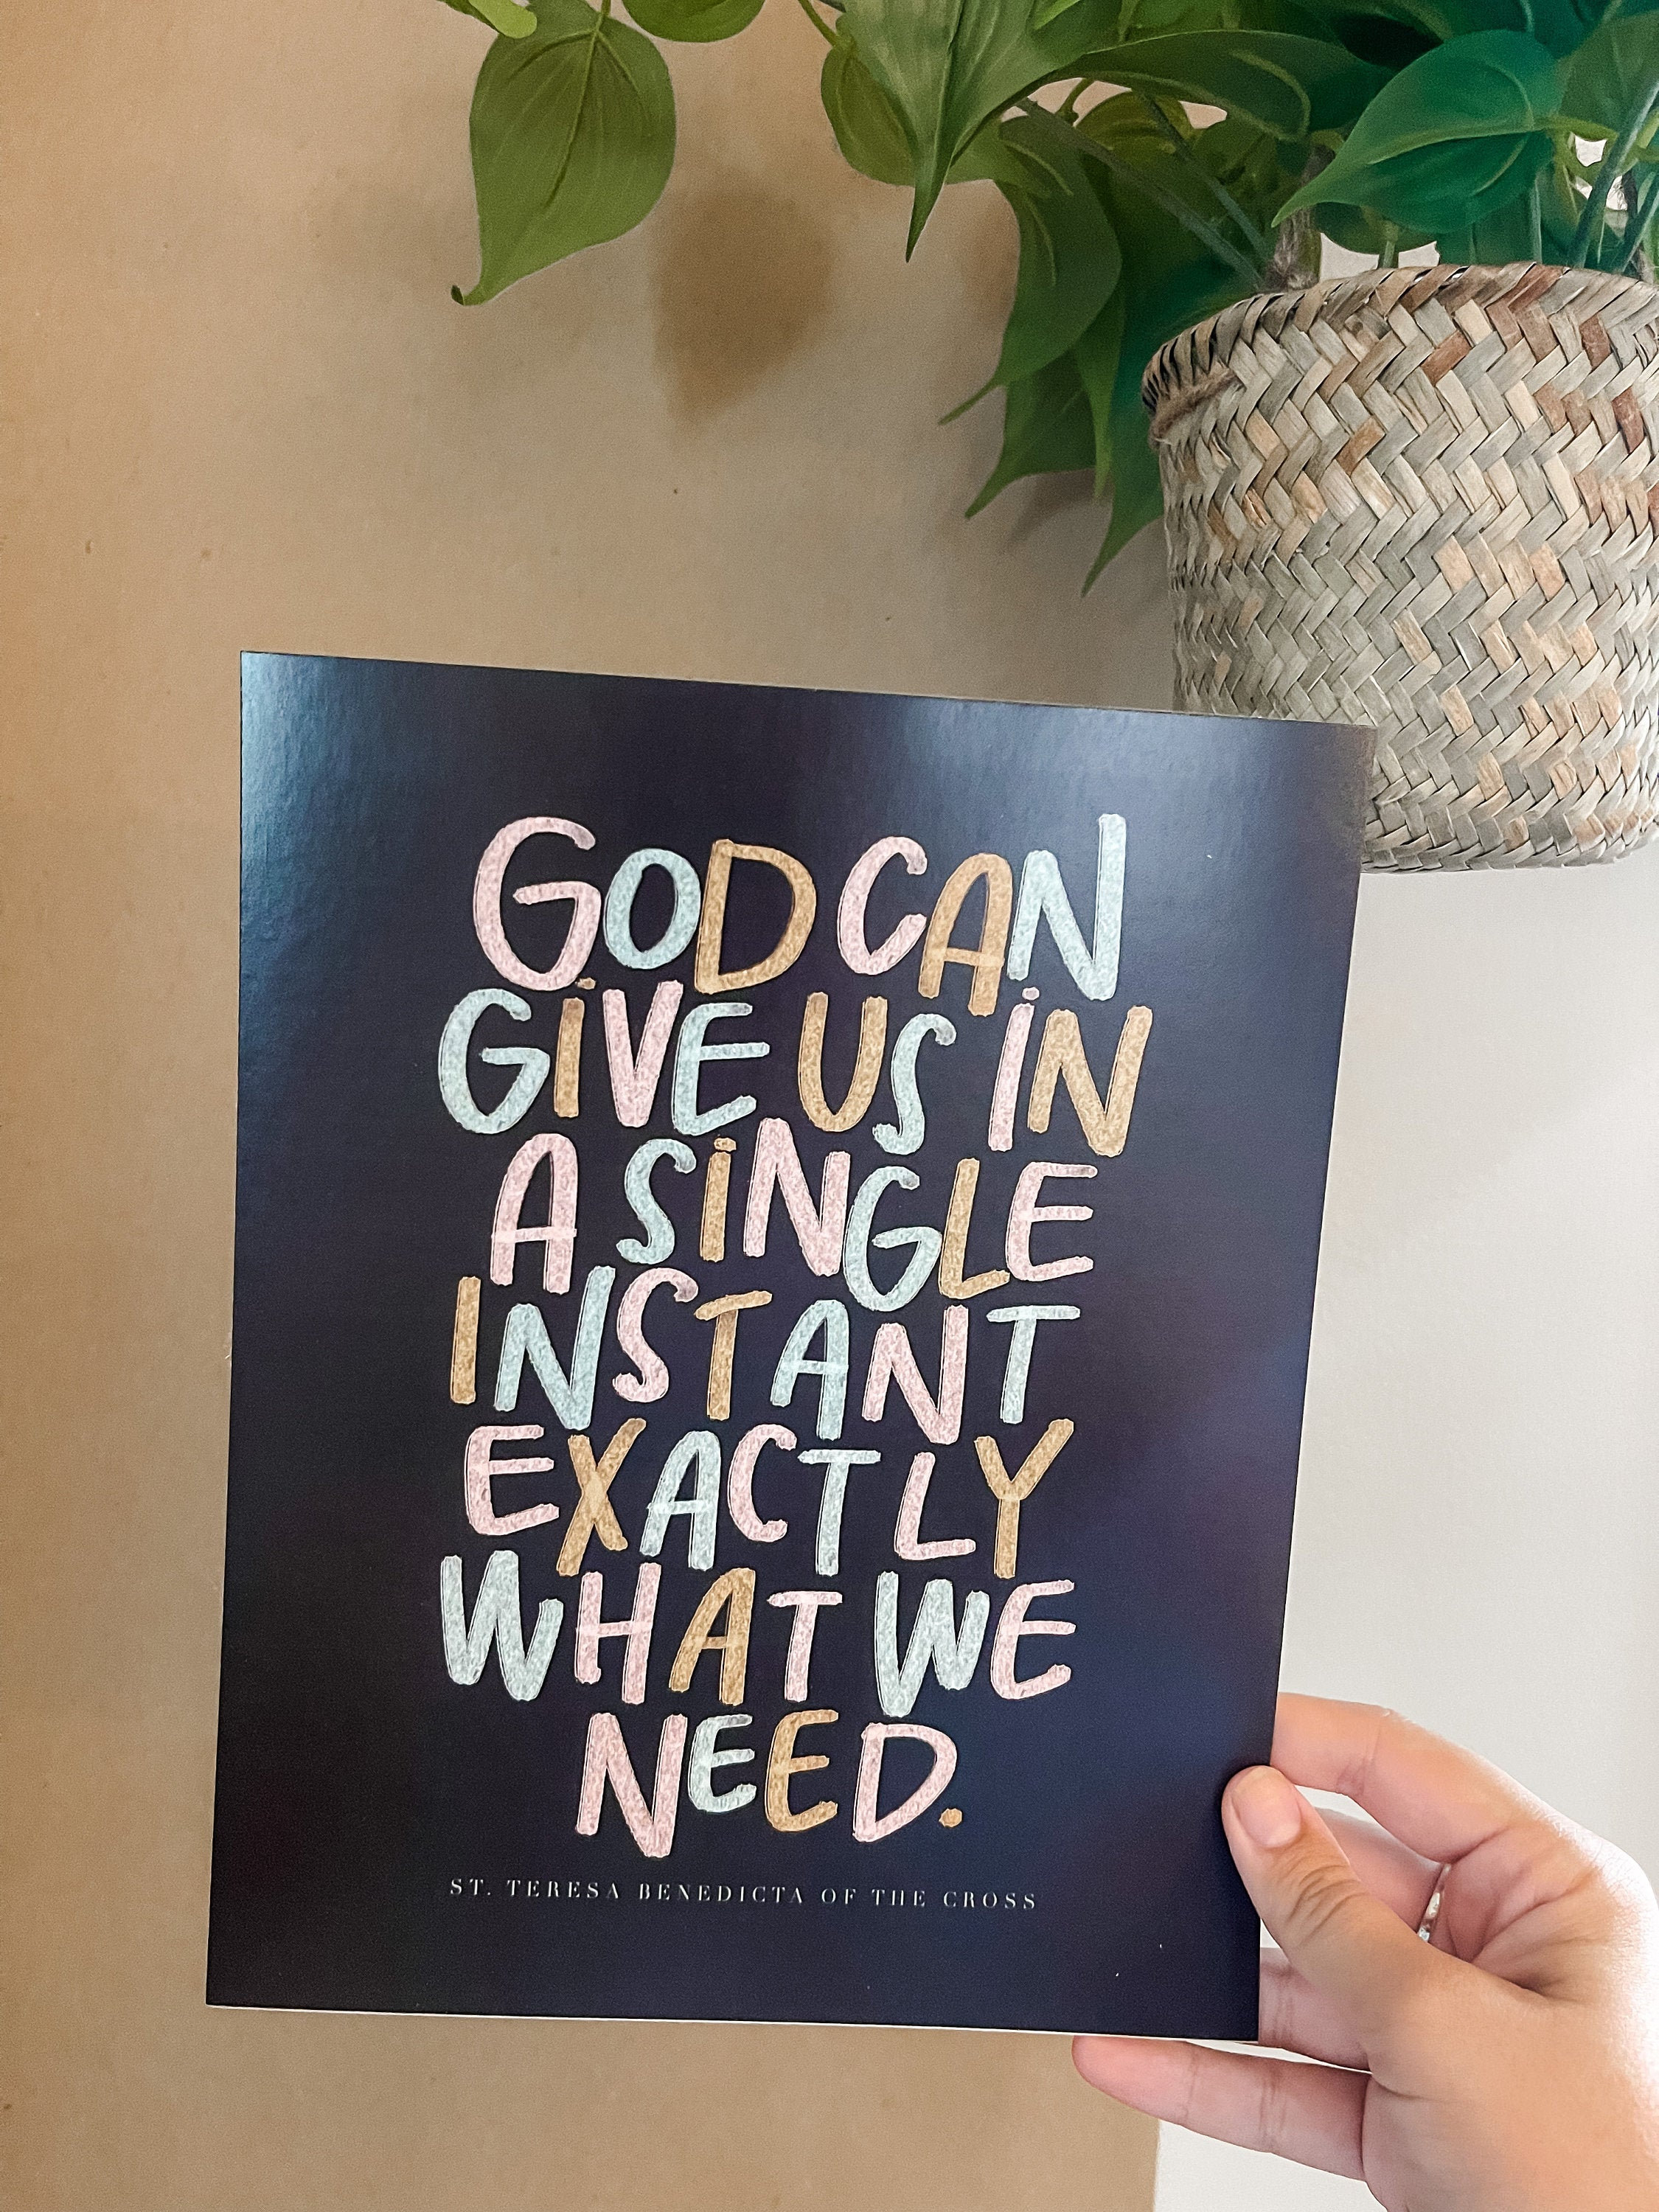 GOD CAN
GiVE US iN
A SiNGLE
INSTANT
EXACTLY
WHAT WE
NEED.
ST. TERESA BENEDICTA OF THE CROSS